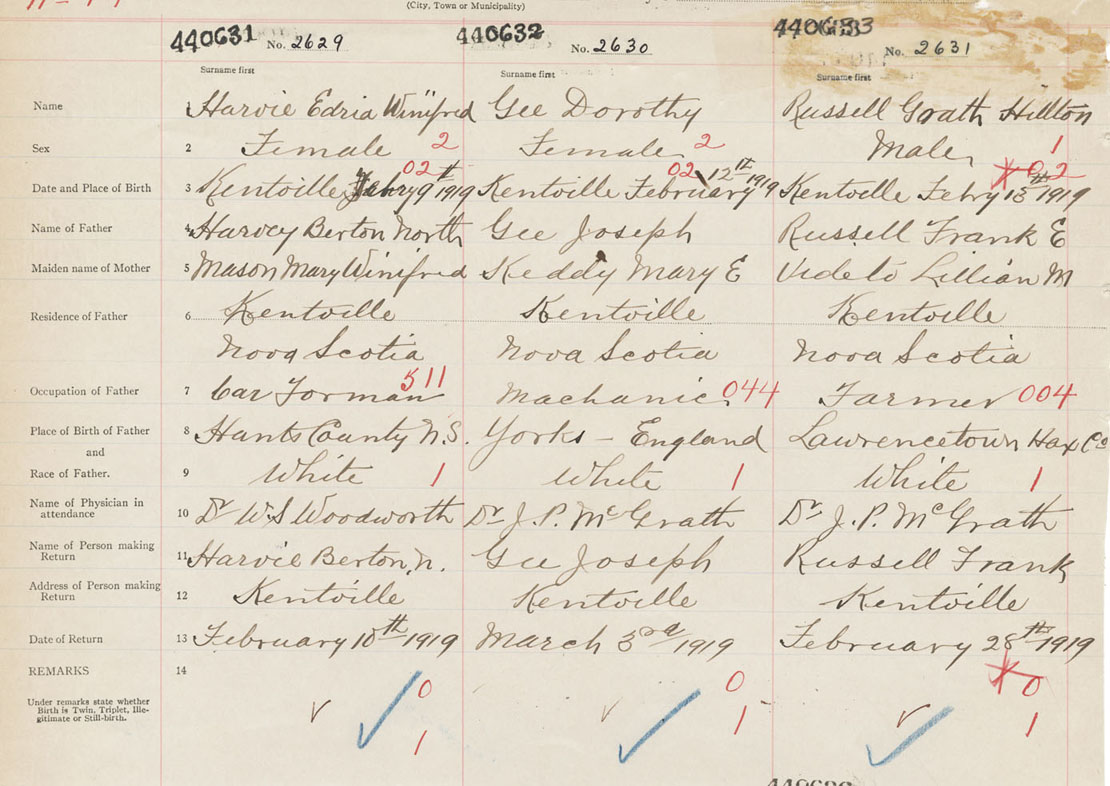 (City, Town or Municipality)
440631 No. 2629 440632 No. 2630 440633 No. 2631
Surname first Surname first Surname first
Name 1 Harvie Edria Winifred Gee Dorothy Russell Grath Hillton
Sex 2 Female 2 Female 2 Male 1
02 02 02
Date and Place of Birth 3 Kentville Febry 9th 1919 Kentville February 12th 1919 Kentville Febry 13th 1919
Name of Father 4 Harvey Berton North Gee Joseph Russell Frank E
Maiden name of Mother 5 Mason Mary Winifred Keddy Mary E Videto Lillian M
Residence of Father 6 Kentville Kentville Kentville
Nova Scotia Nova Scotia Nova Scotia
Occupation of Father 7 Car Forman 511 Machanic 044 Farmer 004
Place of Birth of Father 8 Hants County N.S. Yorks - England Lawrencetown Hax Co
and
Race of Father. 9 White 1 White 1 White 1
Name of Physician in
attendance 10 Dr W.S Woodworth Dr J.P. McGrath Dr J.P. McGrath
Name of Person making
Return 11 Harvie Berton, N. Gee Joseph Russell Frank
Address of Person making
Return 12 Kentville Kentville Kentville
Date of Return 13 February 10th 1919 March 3rd 1919 February 28th 1919
REMARKS 14
0 0 0
Under remarks state whether
Birth is Twin, Triplet, Ille-
gitimate or Still-birth.
1 1 1